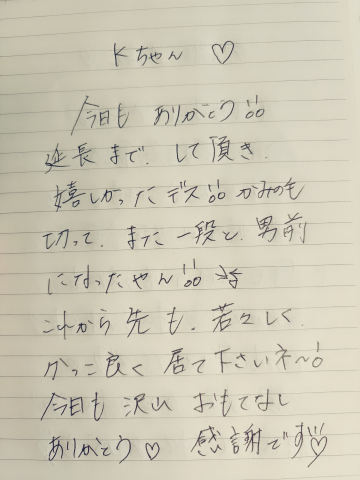 Kちゃん ♡
今日も ありがとう!!
延長まで、して頂き、
嬉しかったデス!! かみのも
切って、また一段と、男前
になったやん!!
これから先も、若々しく、
かっこ良く 居て下さいネ〜!
今日も 沢山 おもてなし
ありがとう♡ 感謝です♡